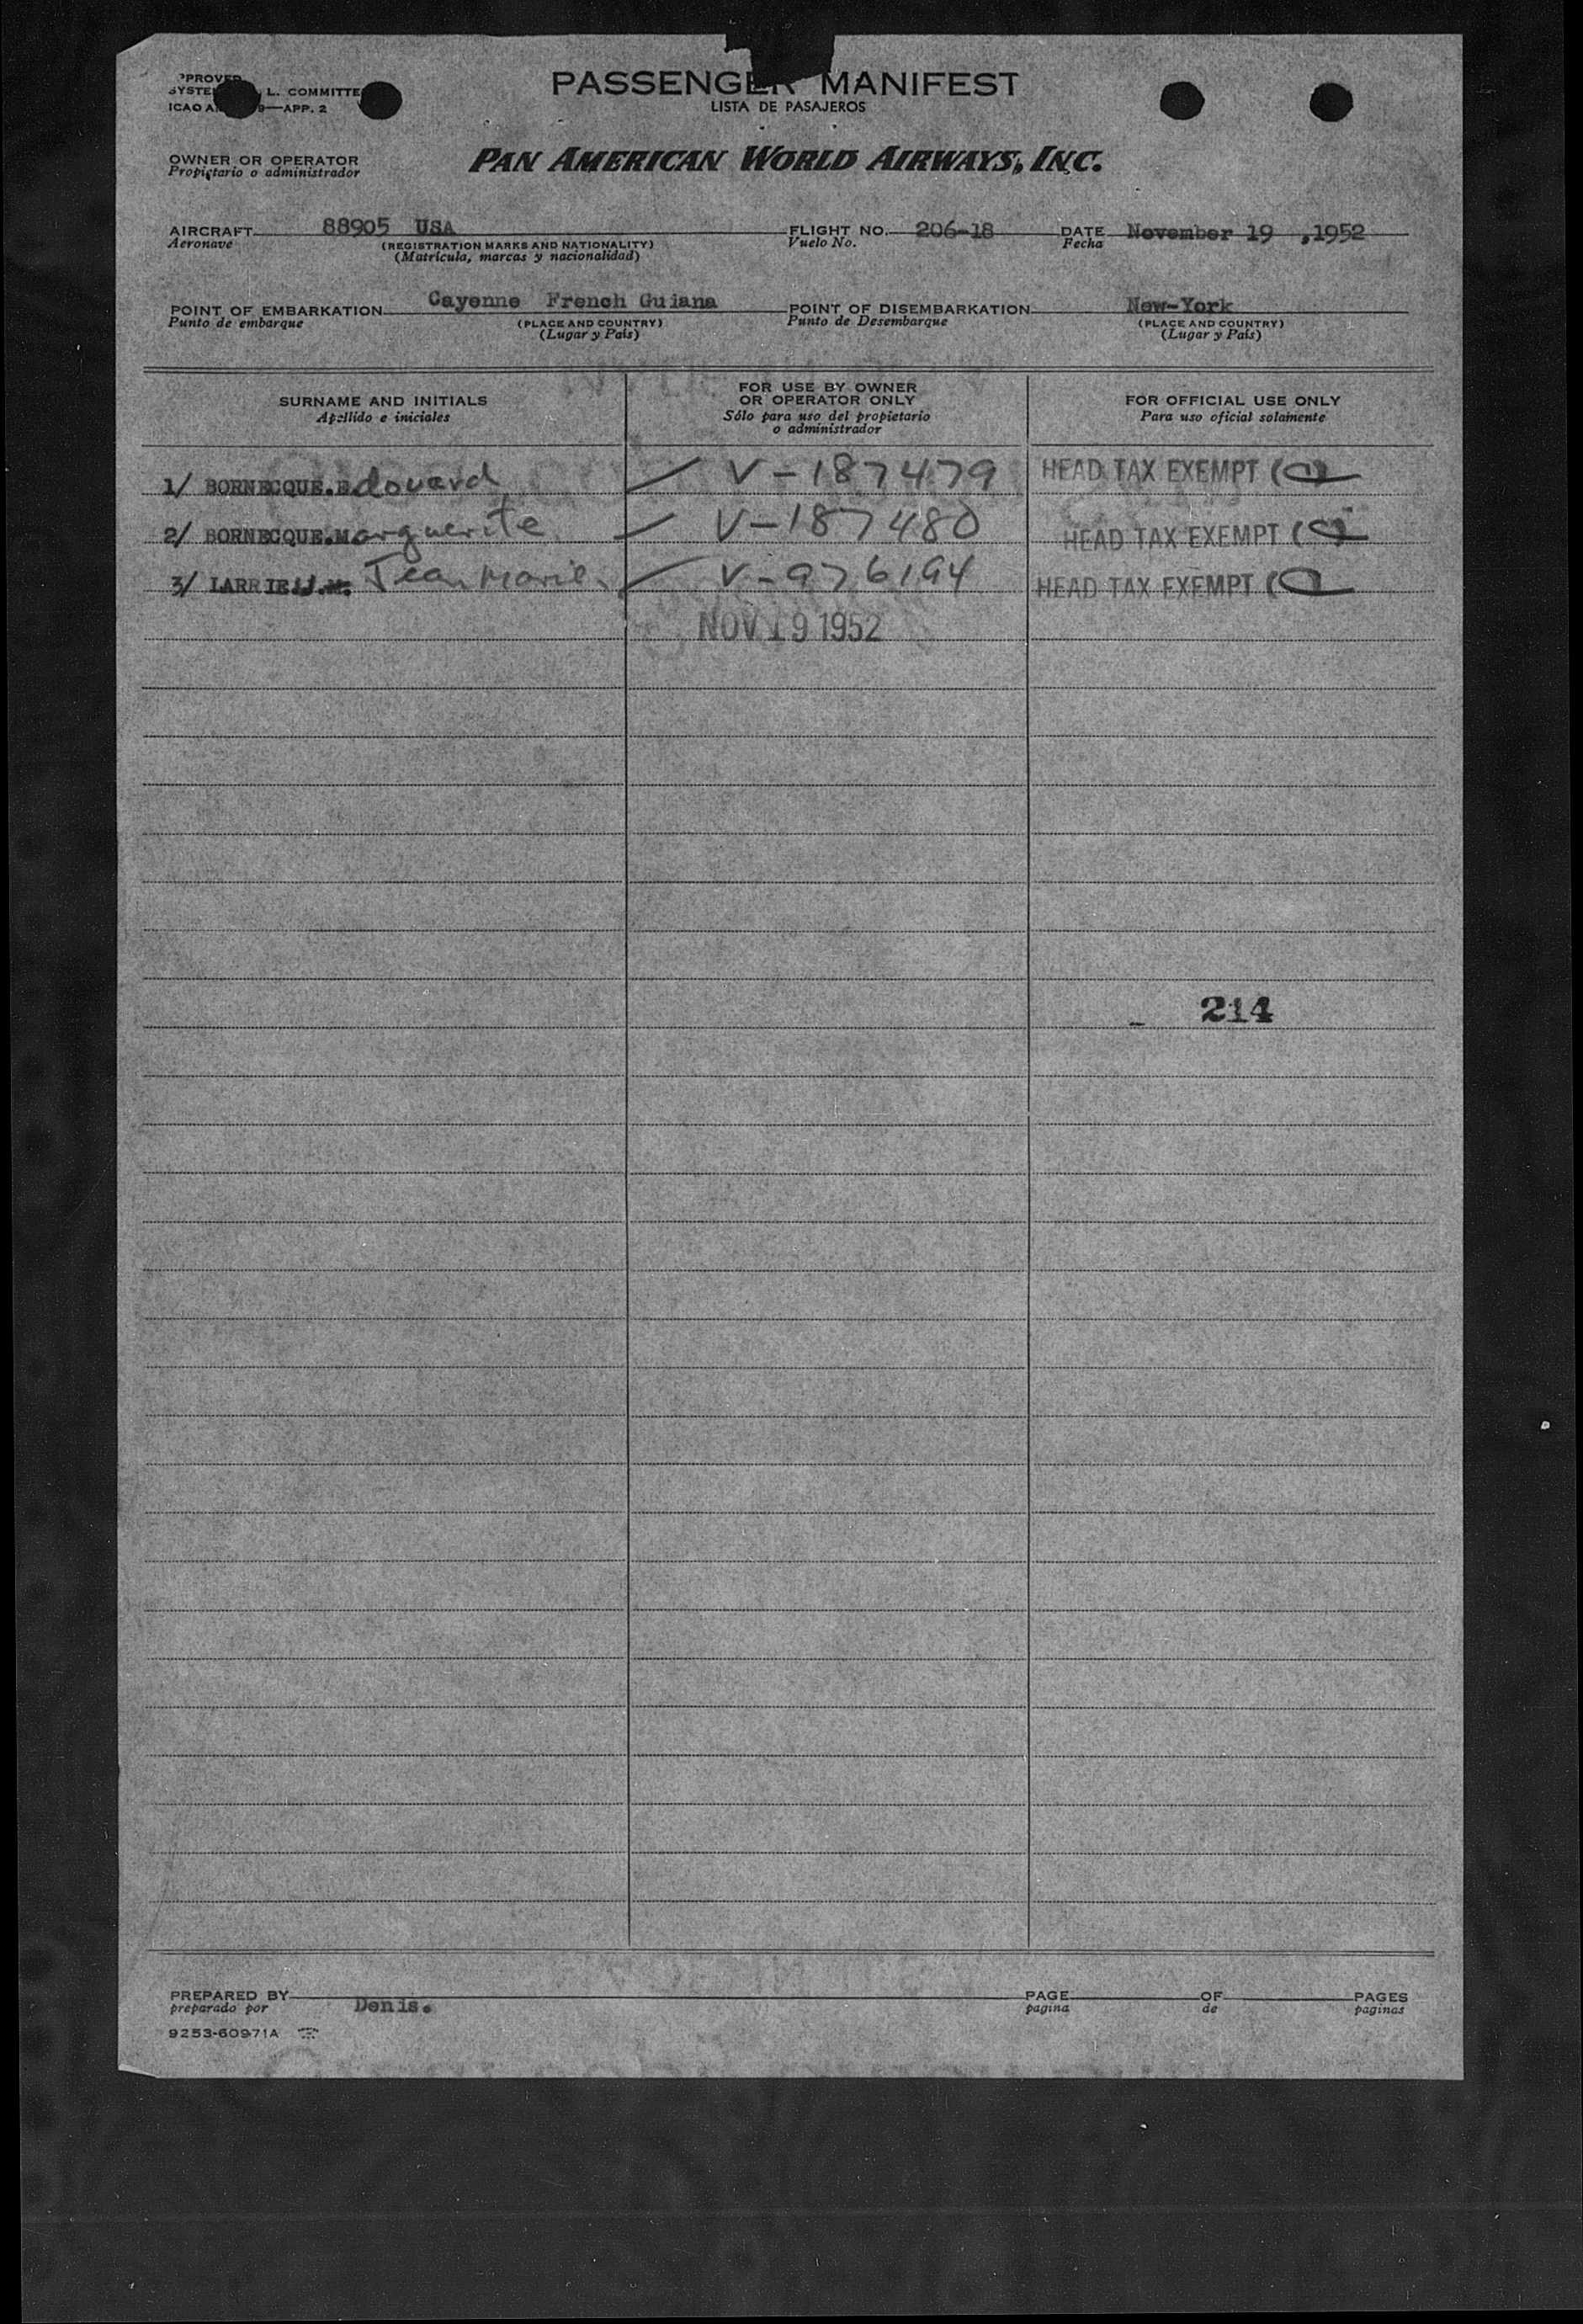 PASSENGER MANIFEST
LISTA DE PASAJEROS
L. COMMITTE
ICAO A 9—APP. 2
OWNER OR OPERATOR
Propietario o administrador
PAN AMERICAN WORLD AIRWAYS, INC.
AIRCRAFT 88905 USA FLIGHT NO. 206-18 DATE November 19 ,1952
Aeronave (REGISTRATION MARKS AND NATIONALITY) Vuelo No. Fecha
(Matrícula, marcas y nacionalidad)
POINT OF EMBARKATION Cayenne French Guiana POINT OF DISEMBARKATION New-York
Punto de embarque (PLACE AND COUNTRY) Punto de Desembarque (PLACE AND COUNTRY)
(Lugar y País) (Lugar y País)
SURNAME AND INITIALS
Apellido e iniciales
FOR USE BY OWNER
OR OPERATOR ONLY
Sólo para uso del propietario
o administrador
FOR OFFICIAL USE ONLY
Para uso oficial solamente
1/ BORNECQUE.Edouard V-187479 HEAD TAX EXEMPT
2/ BORNECQUE.Marguerite V-187480 HEAD TAX EXEMPT
3/ LARRIE J.M. Jean Marie V-976194 HEAD TAX EXEMPT
NOV 19 1952
214
PREPARED BY Denis. PAGE OF PAGES
preparado por pagina de paginas
9253-60971A